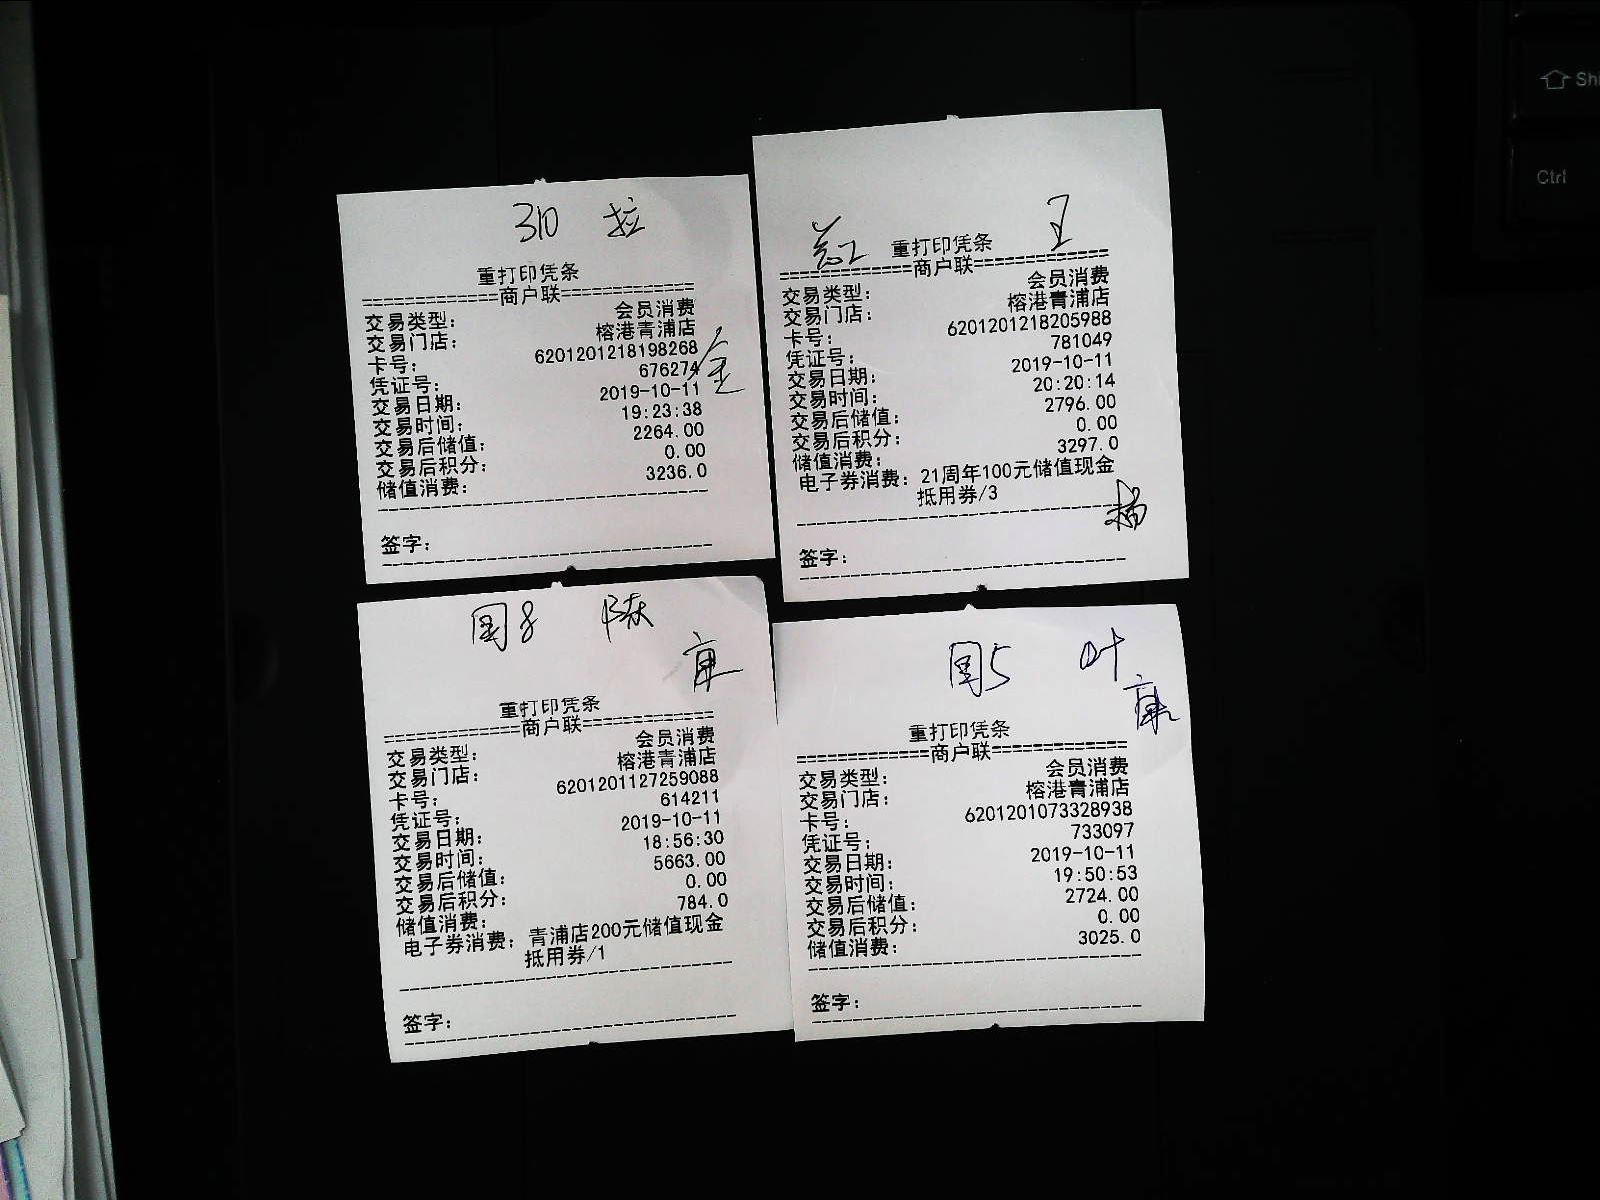 310
重打印凭条
=============商户联=============
交易类型: 会员消费
交易门店: 榕港青浦店
卡号: 6201201218198268
凭证号: 676274
交易日期: 2019-10-11
交易时间: 19:23:38
交易后储值: 2264.00
交易后积分: 0.00
储值消费: 3236.0
签字:
王
重打印凭条
=============商户联=============
交易类型: 会员消费
交易门店: 榕港青浦店
卡号: 6201201218205988
凭证号: 781049
交易日期: 2019-10-11
交易时间: 20:20:14
交易后储值: 2796.00
交易后积分: 0.00
储值消费: 3297.0
电子券消费: 21周年100元储值现金
抵用券/3
签字:
国8 陈
重打印凭条
=============商户联=============
交易类型: 会员消费
交易门店: 榕港青浦店
卡号: 6201201127259088
凭证号: 614211
交易日期: 2019-10-11
交易时间: 18:56:30
交易后储值: 5663.00
交易后积分: 0.00
储值消费: 784.0
电子券消费: 青浦店200元储值现金
抵用券/1
签字:
国5 叶
重打印凭条
=============商户联=============
交易类型: 会员消费
交易门店: 榕港青浦店
卡号: 6201201073328938
凭证号: 733097
交易日期: 2019-10-11
交易时间: 19:50:53
交易后储值: 2724.00
交易后积分: 0.00
储值消费: 3025.0
签字:
Ctrl